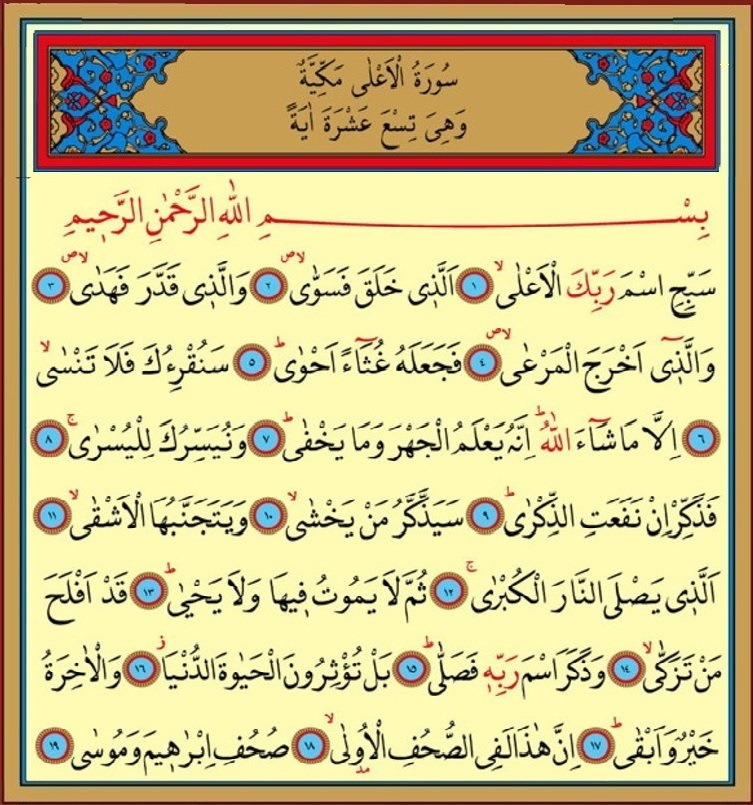 سُورَةُ الْاَعْلٰى مَكِّيَّةٌ
وَهِىَ تِسْعَ عَشْرَةَ اٰيَةً
بِسْمِ اللّٰهِ الرَّحْمٰنِ الرَّحٖيمِ
سَبِّحِ اسْمَ رَبِّكَ الْاَعْلٰىۙ ﴿١﴾ اَلَّذٖى خَلَقَ فَسَوّٰىۙ ﴿٢﴾ وَالَّذٖى قَدَّرَ فَهَدٰىۙ ﴿٣﴾
وَالَّذٖٓى اَخْرَجَ الْمَرْعٰىۙ ﴿٤﴾ فَجَعَلَهُ غُثَٓاءً اَحْوٰىؕ ﴿٥﴾ سَنُقْرِءُكَ فَلَا تَنْسٰىۙ
﴿٦﴾ اِلَّا مَا شَٓاءَ اللّٰهُؕ اِنَّهُ يَعْلَمُ الْجَهْرَ وَمَا يَخْفٰىؕ ﴿٧﴾ وَنُيَسِّرُكَ لِلْيُسْرٰىۚ ﴿٨﴾
فَذَكِّرْ اِنْ نَفَعَتِ الذِّكْرٰىؕ ﴿٩﴾ سَيَذَّكَّرُ مَنْ يَخْشٰىۙ ﴿١٠﴾ وَيَتَجَنَّبُهَا الْاَشْقٰىۙ ﴿١١﴾
اَلَّذٖى يَصْلَى النَّارَ الْكُبْرٰىۚ ﴿١٢﴾ ثُمَّ لَا يَمُوتُ فٖيهَا وَلَا يَحْيٰىؕ ﴿١٣﴾ قَدْ اَفْلَحَ
مَنْ تَزَكّٰىۙ ﴿١٤﴾ وَذَكَرَ اسْمَ رَبِّهٖ فَصَلّٰىؕ ﴿١٥﴾ بَلْ تُؤْثِرُونَ الْحَيٰوةَ الدُّنْيَاؗ ﴿١٦﴾ وَالْاٰخِرَةُ
خَيْرٌ وَاَبْقٰىؕ ﴿١٧﴾ اِنَّ هٰذَا لَفِى الصُّحُفِ الْاُولٰىۙ ﴿١٨﴾ صُحُفِ اِبْرٰهٖيمَ وَمُوسٰى ﴿١٩﴾